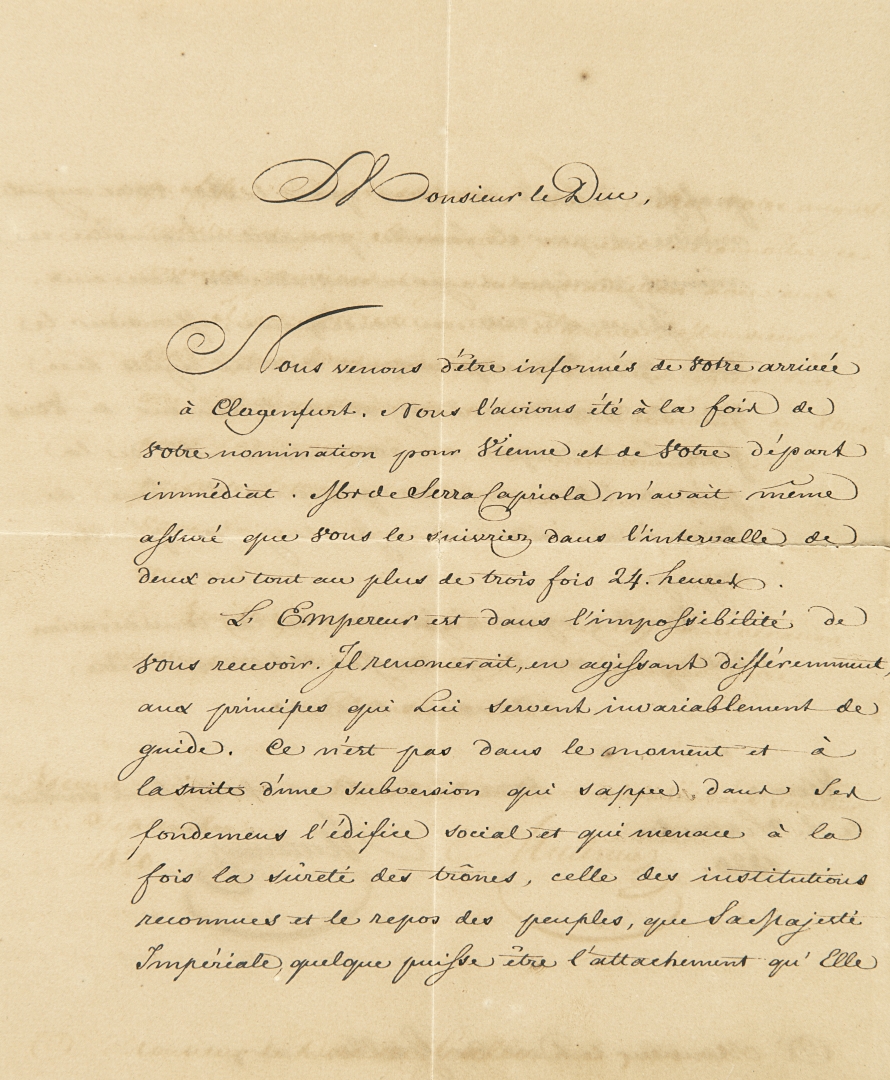 Monsieur le Duc,
Nous venons d'être informés de Votre arrivée
à Clagenfurt. Nous l'avions été à la fois de
Votre nomination pour Vienne et de Votre départ
immédiat. Mr de Serra Capriola m'avait même
assuré que Vous le suivriez dans l'intervalle de
deux ou tout au plus de trois fois 24. heures.
L'Empereur est dans l'impossibilité de
Vous recevoir. Il renoncerait, en agissant différemment,
aux principes qui Lui servent invariablement de
guide. Ce n'est pas dans le moment et à
la suite d'une subversion qui sappe, dans Ses
fondemens l'édifice social et qui menace à la
fois la sûreté des trônes, celle des institutions
reconnues et le repos des peuples, que Sa Majesté
Impériale, quelque puisse être l'attachement qu'Elle